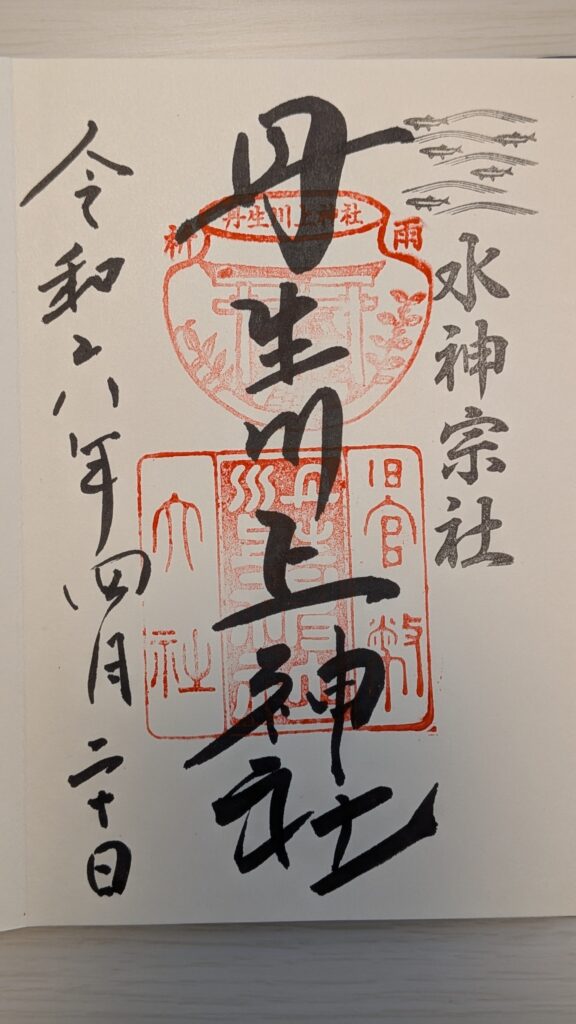 水神宗社
丹生川上神社
令和六年四月二十日
丹生川上神社
祈雨
旧官幣
大社